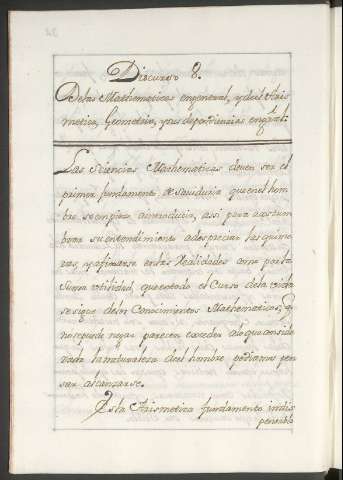 Discurso 8.
De las Mathematicas en general, y de la Aris
metica, Geometria, y sus dependencias en gral.
Las Sciencias Mathematicas deven ser el
primer fundamento de saviduria que en el hom
bre se empiese a introducir, assi para acostum
brar su entendimiento a despreciar las quime
ras, y afirmarse en las Realidades como por la
suma utilidad, que en todo el Curso de la vida
se sigue de los Conocimientos Mathematicos, q
no se puede negar parecen exceder a lo que conside
rada la naturaleza del hombre podiamos pen
sar alcanzarse.
Es la Arismetica fundamento indis
pensable